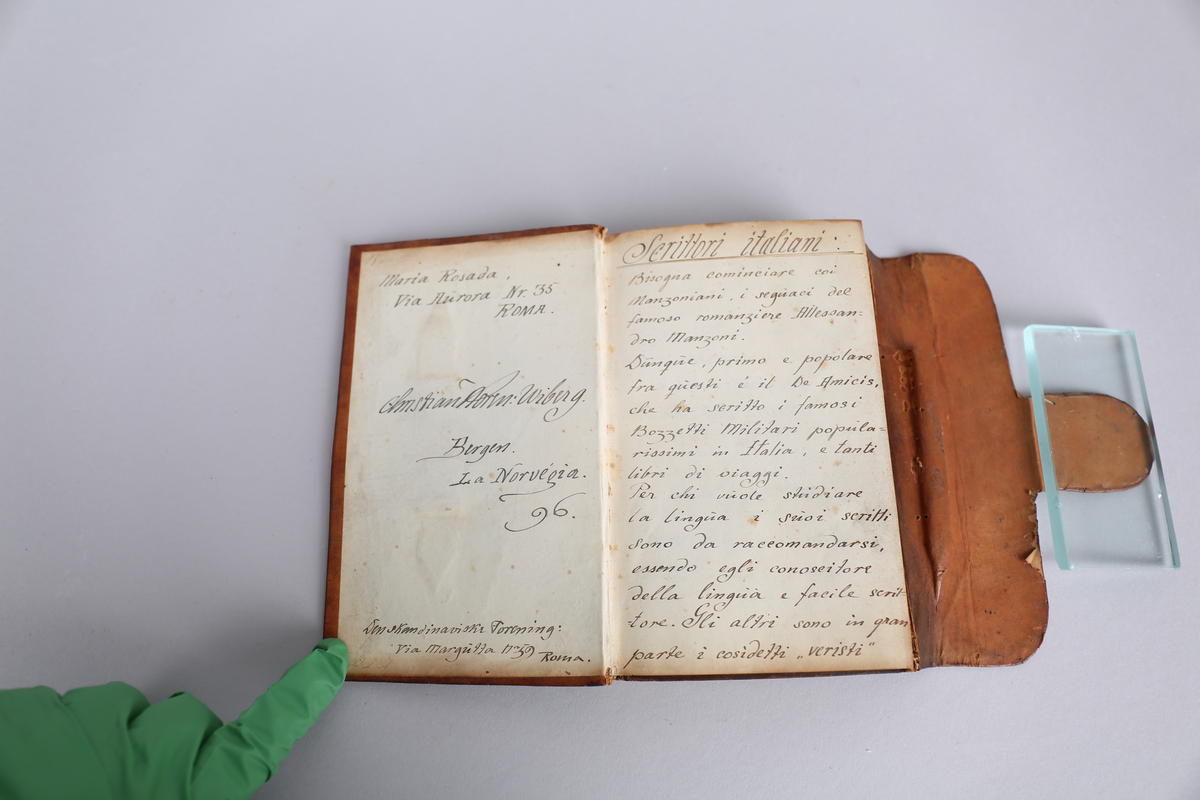 Maria Rosada,
Via Aŭrora Nr. 35
ROMA.
Christian Wiberg.
Bergen.
La Norvégia.
96.
Den skandinaviske Forening:
Via Margŭtta No 59 Roma.
Scrittori italiani:
Bisogna cominciare coi
Manzoniani, i segŭaci del
famoso romanziere Allessan=
dro Manzoni.
Dŭnqŭe, primo e popolare
fra qŭesti é il De Amicis,
che ha scritto i famosi
Bozzetti Militari popŭla=
rissimi in Italia, e tanti
libri di viaggi.
Per chi vŭole stŭdiare
la lingŭa i sŭoi scritti
sono da raccomandarsi,
essendo egli conoscitore
della lingŭa e facile scrit-
tore. Gli altri sono in gran
parte i cosidetti „veristi"